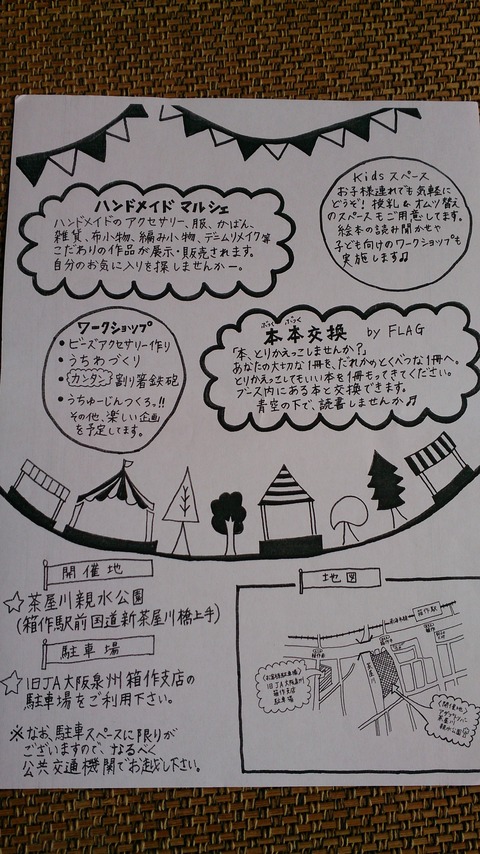 ハンドメイド マルシェ
ハンドメイドの アクセサリー、服、かばん、
雑貨、布小物、編み小物、デニムリメイク等
こだわりの作品が展示・販売されます。
自分のお気に入りを探しませんかー。
Kidsスペース
お子様連れでも気軽に
どうぞ！授乳&オムツ替え
のスペースもご用意してます。
絵本の読み聞かせや
子ども向けのワークショップも
実施します♫
ワークショップ
• ビーズアクセサリー作り
• うちわづくり
• カンタン 割り箸鉄砲
• うちゅーじんつくろ。!!
その他、楽しい企画
を予定してます。
ぶっく ぶっく
本本交換 by FLAG
「本、とりかえっこしませんか？」
あなたの大切な1冊を、だれかのとくべつな1冊へ。
とりかえっこしてもいい本を1冊もってきてください。
ブース内にある本と交換できます。
青空の下で、読書しませんか♬
開催地
☆茶屋川親水公園
(箱作駅前国道新茶屋川橋上手)
駐車場
☆旧JA大阪泉州箱作支店の
駐車場をご利用下さい。
※なお、駐車スペースに限りが
ございますので、なるべく
公共交通機関でお越し下さい。
地図
箱作駅
南海本線
茶屋川
(お客様駐車場)
旧JA大阪泉州
箱作支店
駐車場
(開催地)